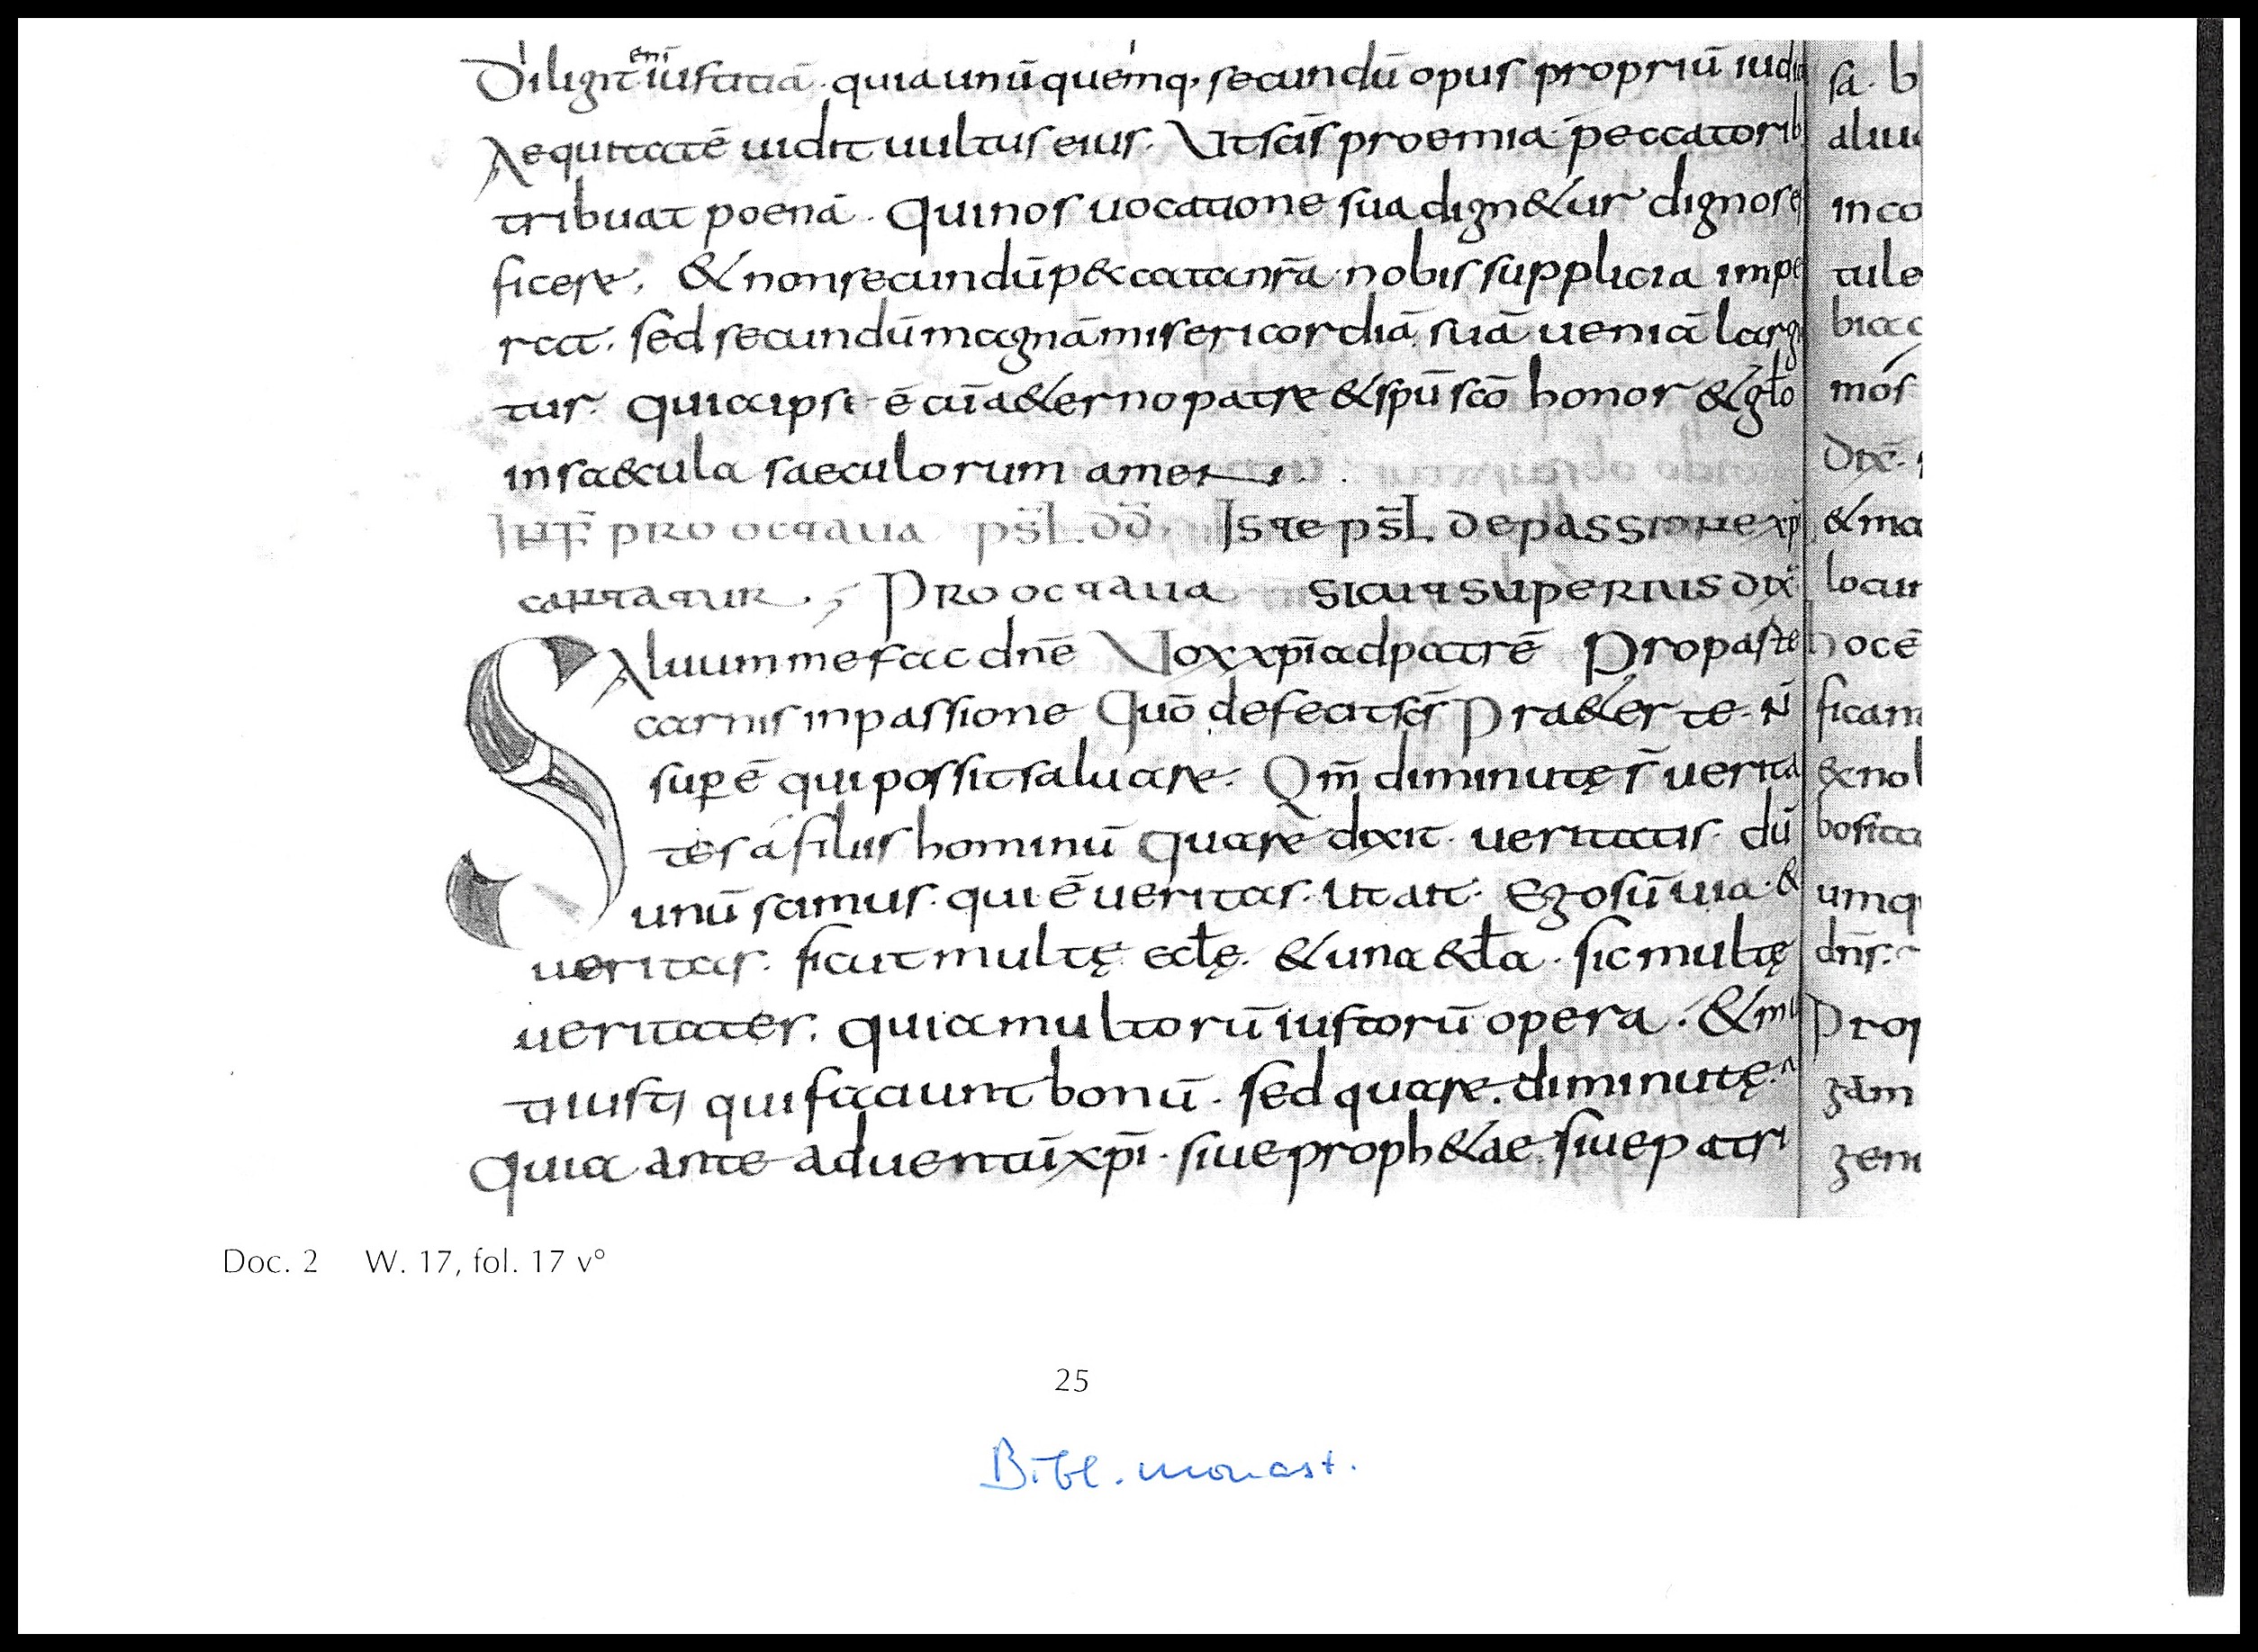 Diligit enī iusticiā · quia unū quemq; secundū opus propriū iudi
Aequitatē uidit uultus eius. Ut scīs proemia peccatorib
tribuat poenā · qui nos uocatione sua dign&ur digno se
ficere, & non secundū p&cata nrā nobis supplicia impe
rtia. sed secundū magnā misericordiā suā ueniā largi
tur. quia ipsi ē cū a&erno patre & spū scō honor & glo
in sa&cula saeculorum amen
IN F̄ PRO OCTAUA PSL DD. Iste psl de passione xpi
cantatur. Pro octaua sicut superius dix
Saluum me fac dnē Vox xpī ad patrē Pro parte
carnis in passione Quō defecit scs Pra&er te. n̄
sup ē qui possit saluare. Qm̄ diminutę s̄ uerita
tes a filiis hominū quare dixit ueritatis. dū
unū scimus. qui ē ueritas. ut ait. Ego sū uia. &
ueritas. sicut multę eclę. & una &cla. sic multę
ueritates. quia multorū iustorū opera. & mul
ti iusti qui faciunt bonū. sed quare. diminutę.
Quia ante aduentū xpī. siue proph&ae siue patri
sa. b
aliu
in co
tule
bia
mos
dix.
& ma
locu
hoc ē
fican
& no
bo sita
umq
dns.
Pro
gam
gen
Doc. 2 W. 17, fol. 17 v°
25
Bibl. monast.